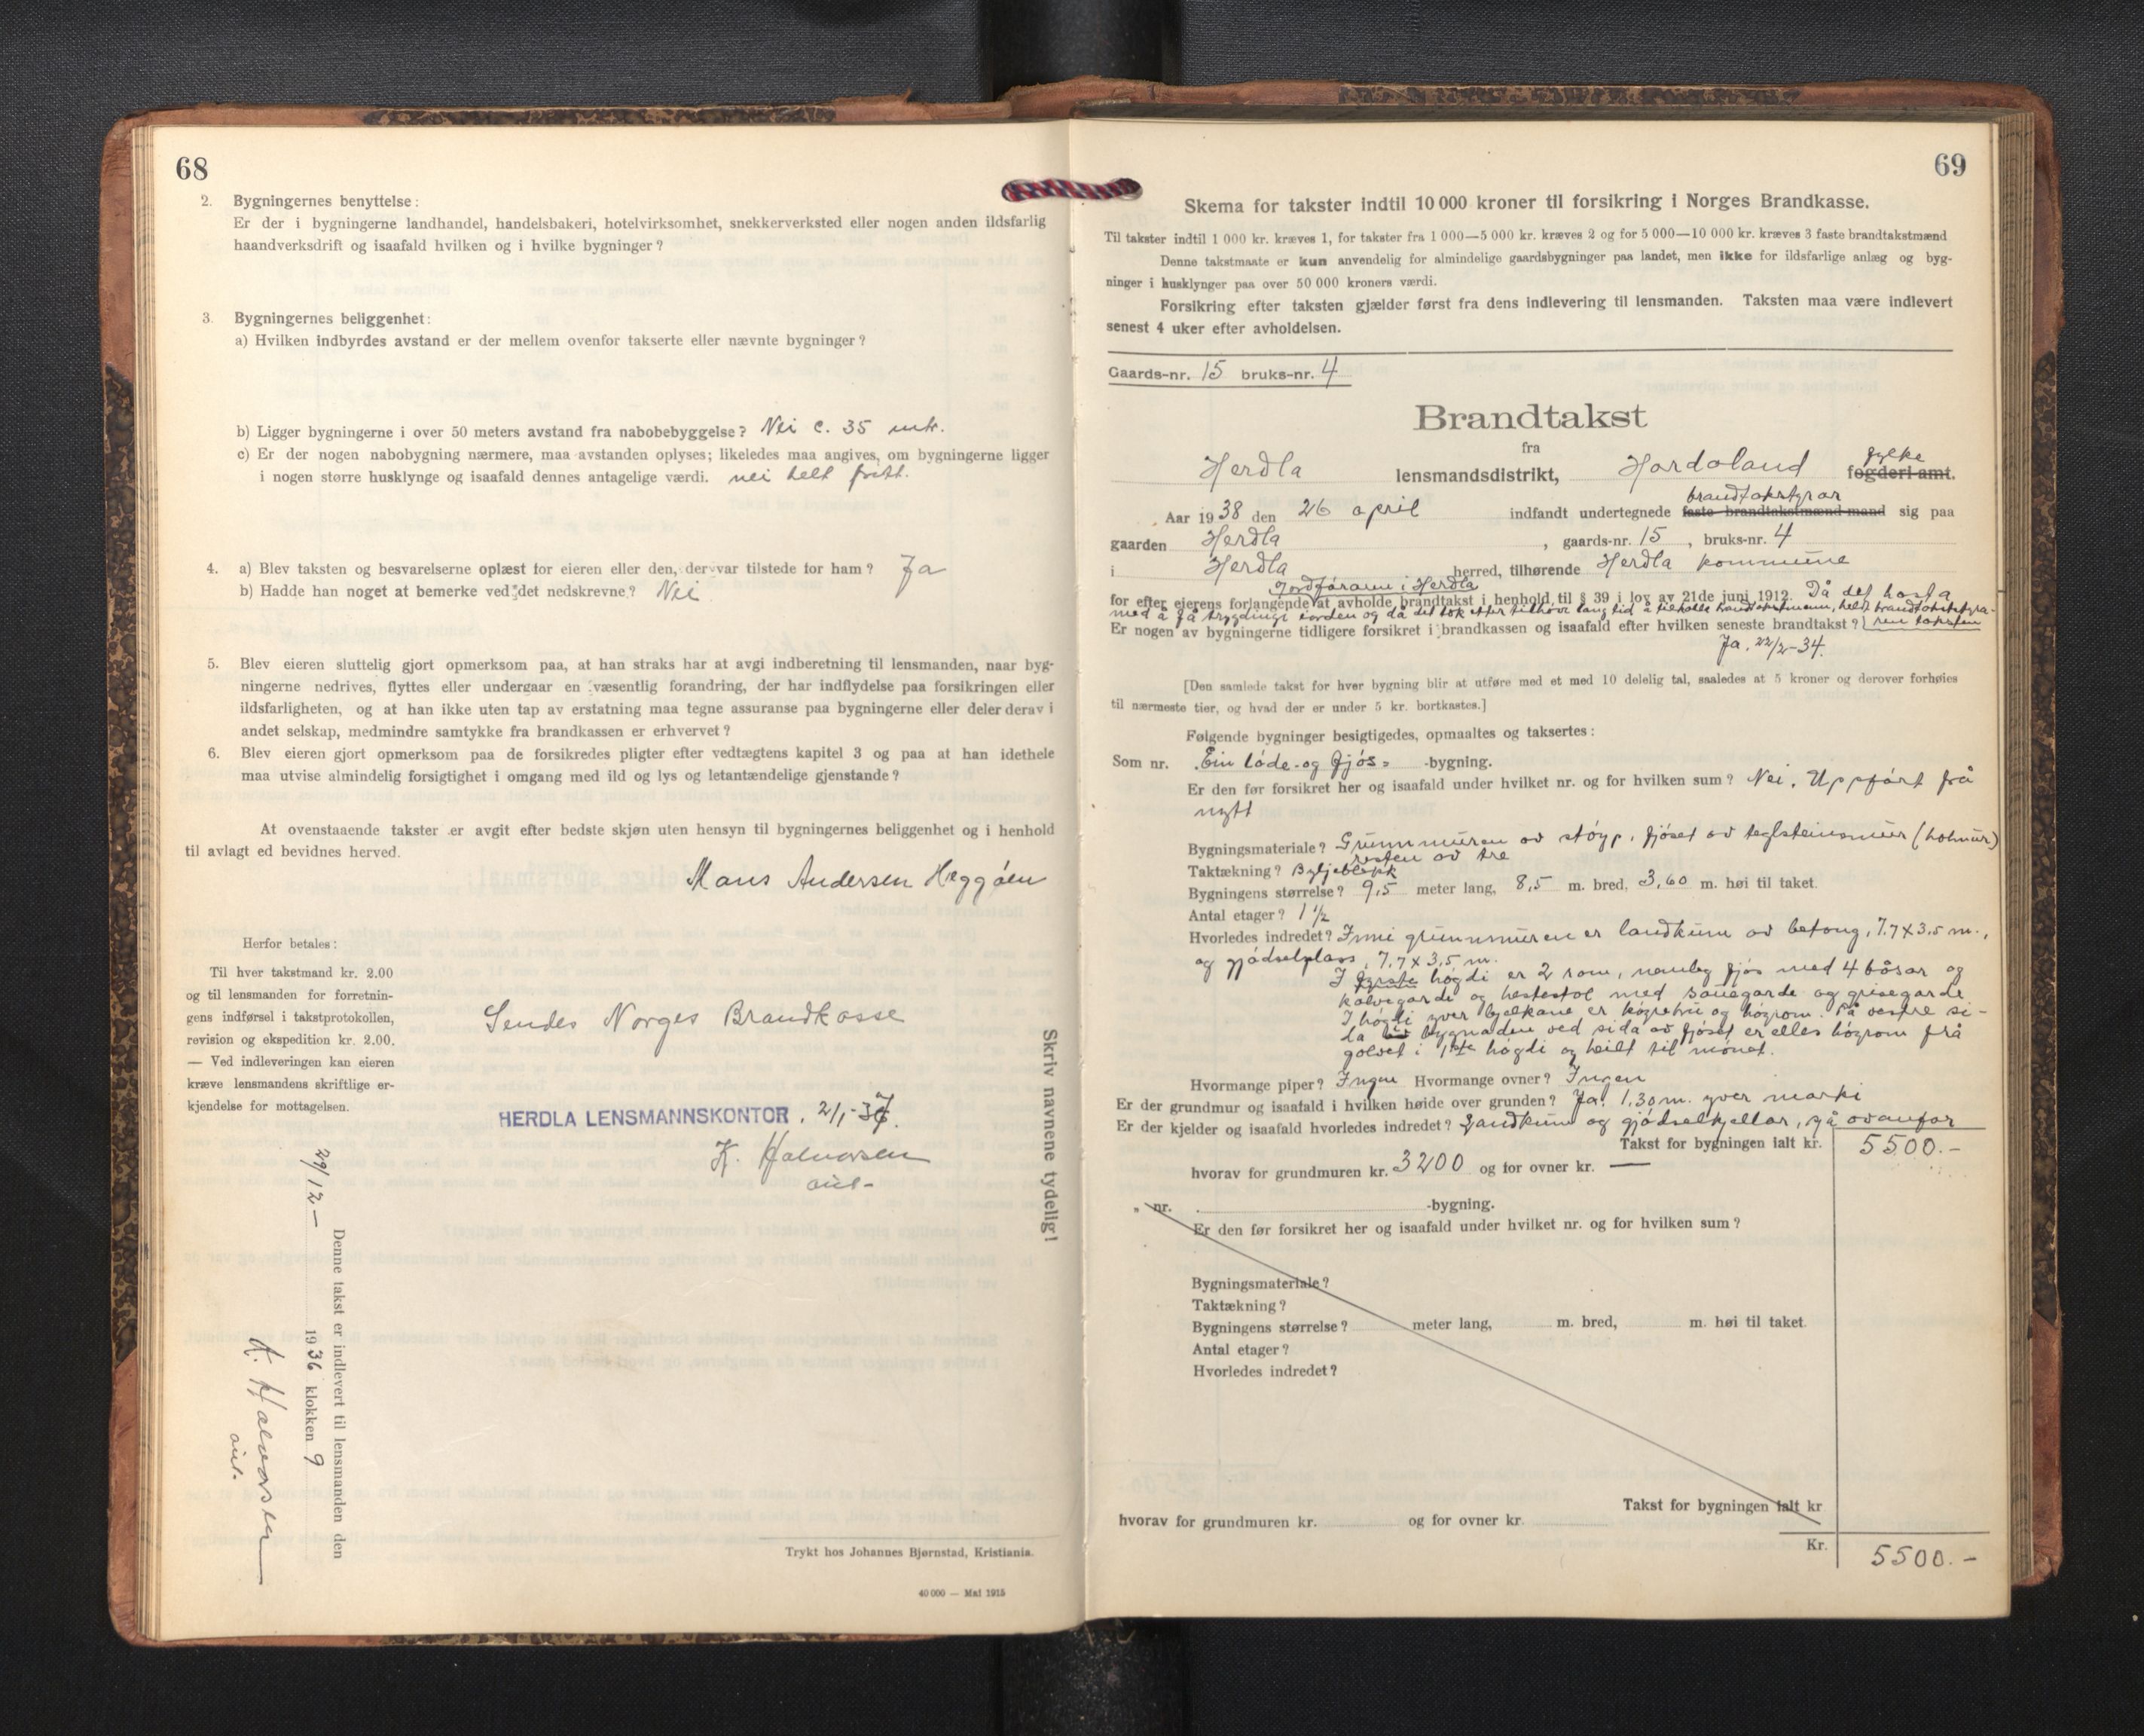 68
2. Bygningernes benyttelse:
Er der i bygningerne landhandel, handelsbakeri, hotelvirksomhet, snekkerverksted eller nogen anden ildsfarlig
haandverksdrift og isaafald hvilken og i hvilke bygninger?
3. Bygningernes beliggenhet:
a) Hvilken indbyrdes avstand er der mellem ovenfor takserte eller nævnte bygninger?
b) Ligger bygningerne i over 50 meters avstand fra nabobebyggelse? Nei c. 35 mtr.
c) Er der nogen nabobygning nærmere, maa avstanden oplyses; likeledes maa angives, om bygningerne ligger
i nogen større husklynge og isaafald dennes antagelige værdi. nei helt fritt.
4. a) Blev taksten og besvarelserne oplæst for eieren eller den, der var tilstede for ham? Ja
b) Hadde han noget at bemerke ved det nedskrevne? Nei
5. Blev eieren sluttelig gjort opmerksom paa, at han straks har at avgi indberetning til lensmanden, naar byg-
ningerne nedrives, flyttes eller undergaar en væsentlig forandring, der har indflydelse paa forsikringen eller
ildsfarligheten, og at han ikke uten tap av erstatning maa tegne assuranse paa bygningerne eller deler derav i
andet selskap, medmindre samtykke fra brandkassen er erhvervet?
6. Blev eieren gjort opmerksom paa de forsikredes pligter efter vedtægtens kapitel 3 og paa at han idethele
maa utvise almindelig forsigtighet i omgang med ild og lys og letantændelige gjenstande?
At ovenstaaende takster er avgit efter bedste skjøn uten hensyn til bygningernes beliggenhet og i henhold
til avlagt ed bevidnes herved.
Mons Andersen Heggøen
Herfor betales:
Til hver takstmand kr. 2.00
og til lensmanden for forretnin-
gens indførsel i takstprotokollen,
revision og ekspedition kr. 2.00.
— Ved indleveringen kan eieren
kræve lensmandens skriftlige er-
kjendelse for mottagelsen.
Sendes Norges Brandkasse
HERDLA LENSMANNSKONTOR, 2/1-37.
K. Halvorsen
Denne takst er indlevert til lensmanden den
29/12 – 1936 klokken 9
K. Halvorsen
Skriv navnene tydelig!
Trykt hos Johannes Bjørnstad, Kristiania.
40 000 — Mai 1915
69
Skema for takster indtil 10 000 kroner til forsikring i Norges Brandkasse.
Til takster indtil 1 000 kr. kræves 1, for takster fra 1 000—5 000 kr. kræves 2 og for 5 000—10 000 kr. kræves 3 faste brandtakstmænd
Denne takstmaate er kun anvendelig for almindelige gaardsbygninger paa landet, men ikke for ildsfarlige anlæg og byg-
ninger i husklynger paa over 50 000 kroners værdi.
Forsikring efter taksten gjælder først fra dens indlevering til lensmanden. Taksten maa være indlevert
senest 4 uker efter avholdelsen.
Gaards-nr. 15 bruks-nr. 4
Brandtakst
fra
Herdla lensmandsdistrikt, Hordoland fylke fogderi amt.
Aar 1938 den 26 april indfandt undertegnede brandtakstyrar faste brandtakstmænd mand sig paa
gaarden Herdla, gaards-nr. 15, bruks-nr. 4
i Herdla herred, tilhørende Herdla kommune
Jordføraren i Herdla
for efter eierens forlangende at avholde brandtakst i henhold til § 39 i lov av 21de juni 1912. Då det hasta
med å få trygdingi i orden og då det tok etter tilhøve lang tid å tilkalle brandtakstmenn, heldt brandtakstsyra-
Er nogen av bygningerne tidligere forsikret i brandkassen og isaafald efter hvilken seneste brandtakst? ren taksten
Ja. 22/2-34.
[Den samlede takst for hver bygning blir at utføre med et med 10 delelig tal, saaledes at 5 kroner og derover forhøies
til nærmeste tier, og hvad der er under 5 kr. bortkastes.]
Følgende bygninger besigtigedes, opmaaltes og taksertes:
Som nr. Ein løde- og fjøs- -bygning.
Er den før forsikret her og isaafald under hvilket nr. og for hvilken sum? Nei. Uppført frå
nytt
Bygningsmateriale? Grunnmuren av støyp, fjøset av teglsteinsmur (holmur)
resten av tre
Taktækning? Bylgjeblekk
Bygningens størrelse? 9,5 meter lang, 8,5 m. bred, 3,60 m. høi til taket.
Antal etager? 1 1/2
Hvorledes indredet? Inni grunnmuren er landkum av betong, 7.7 x 3.5 m.,
og gjødselplass, 7,7 x 3,5 m.
I fyrste høgdi er 2 rom, nemleg fjøs med 4 båsar og
kalvegarde og hestestal med sauegarde og grisegarde
I høgdi yver bjelkane er høyrebu og høyrom. På vestre si-
da bygnaden ved sida av fjøset er elles høyrom frå
golvet i 1ste høgdi og heilt til mønet.
Hvormange piper? Ingen Hvormange ovner? Ingen
Er der grundmur og isaafald i hvilken høide over grunden? Ja! 1,30 m. yver marki
Er der kjelder og isaafald hvorledes indredet? Landkum og gjødselkjellar, sjå ovanfor
Takst for bygningen ialt kr. 5500.-
hvorav for grundmuren kr. 3200 og for ovner kr. —
" nr. -bygning.
Er den før forsikret her og isaafald under hvilket nr. og for hvilken sum?
Bygningsmateriale?
Taktækning?
Bygningens størrelse? meter lang, m. bred, m. høi til taket.
Antal etager?
Hvorledes indredet?
Takst for bygningen ialt kr
hvorav for grundmuren kr. og for ovner kr.
Kr. 5500.-